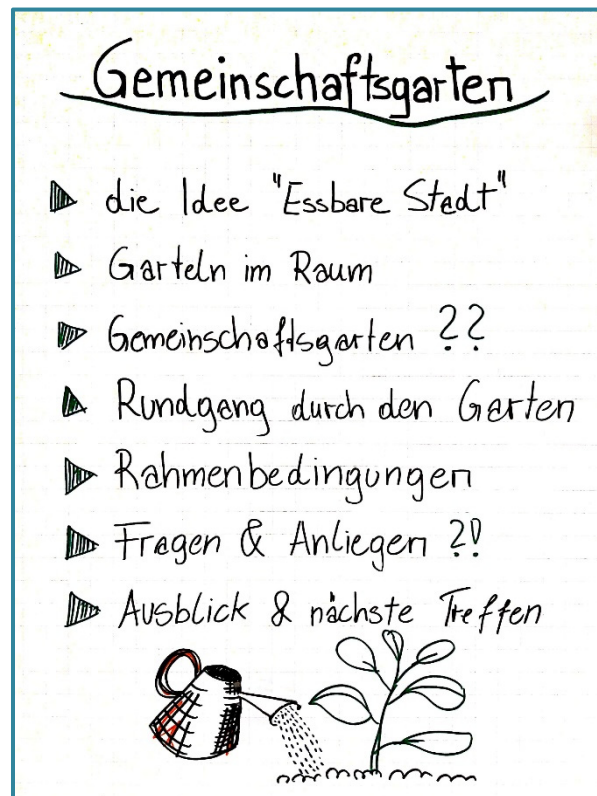 Gemeinschaftsgarten
die Idee "Essbare Stadt"
Garteln im Raum
Gemeinschaftsgarten ??
Rundgang durch den Garten
Rahmenbedingungen
Fragen & Anliegen ?!
Ausblick & nächste Treffen